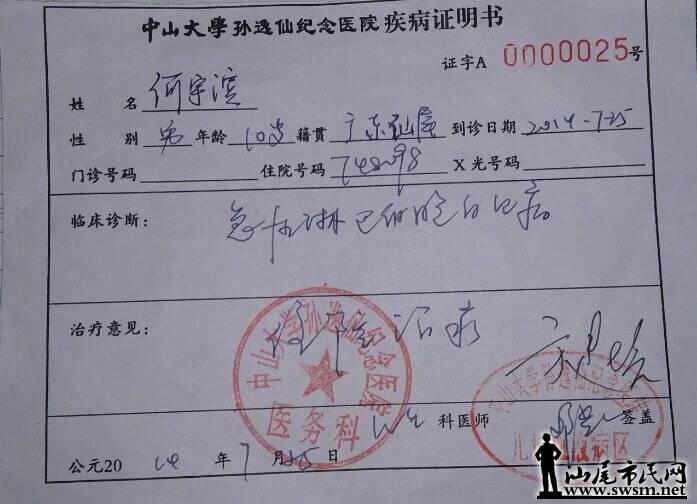 中山大學孙逸仙纪念医院疾病证明书
证字A 0000025号
姓 名 何宇滨
性 别 男 年龄 10岁 籍贯 广东汕尾 到诊日期 2014-7-25
门诊号码 住院号码 748098 X光号码
临床诊断: 急性淋巴细胞白血病
治疗意见: 住院治疗
中山大学孙逸仙纪念医院
医务科
科医师 签盖
公元2014年7月25日
山尾市民网
www.swsm.net